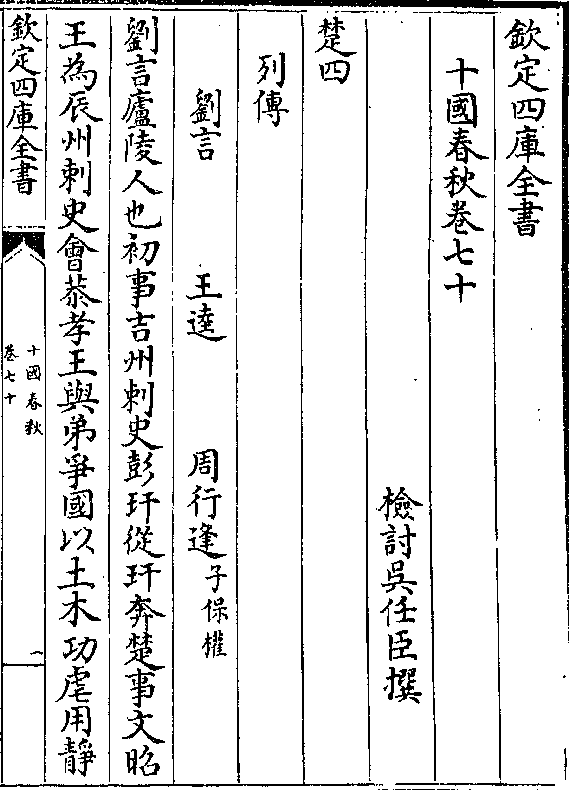 欽定四庫全書
十國春秋卷七十
檢討吳任臣撰
楚四
列傳
劉言 王逵 周行逢子保權
劉言廬陵人也初事吉州刺史彭玕從玕奔楚事文昭
王為辰州刺史會恭孝王與弟爭國以土木功虐用靜
欽定四庫全書
十國春秋
卷七十
一